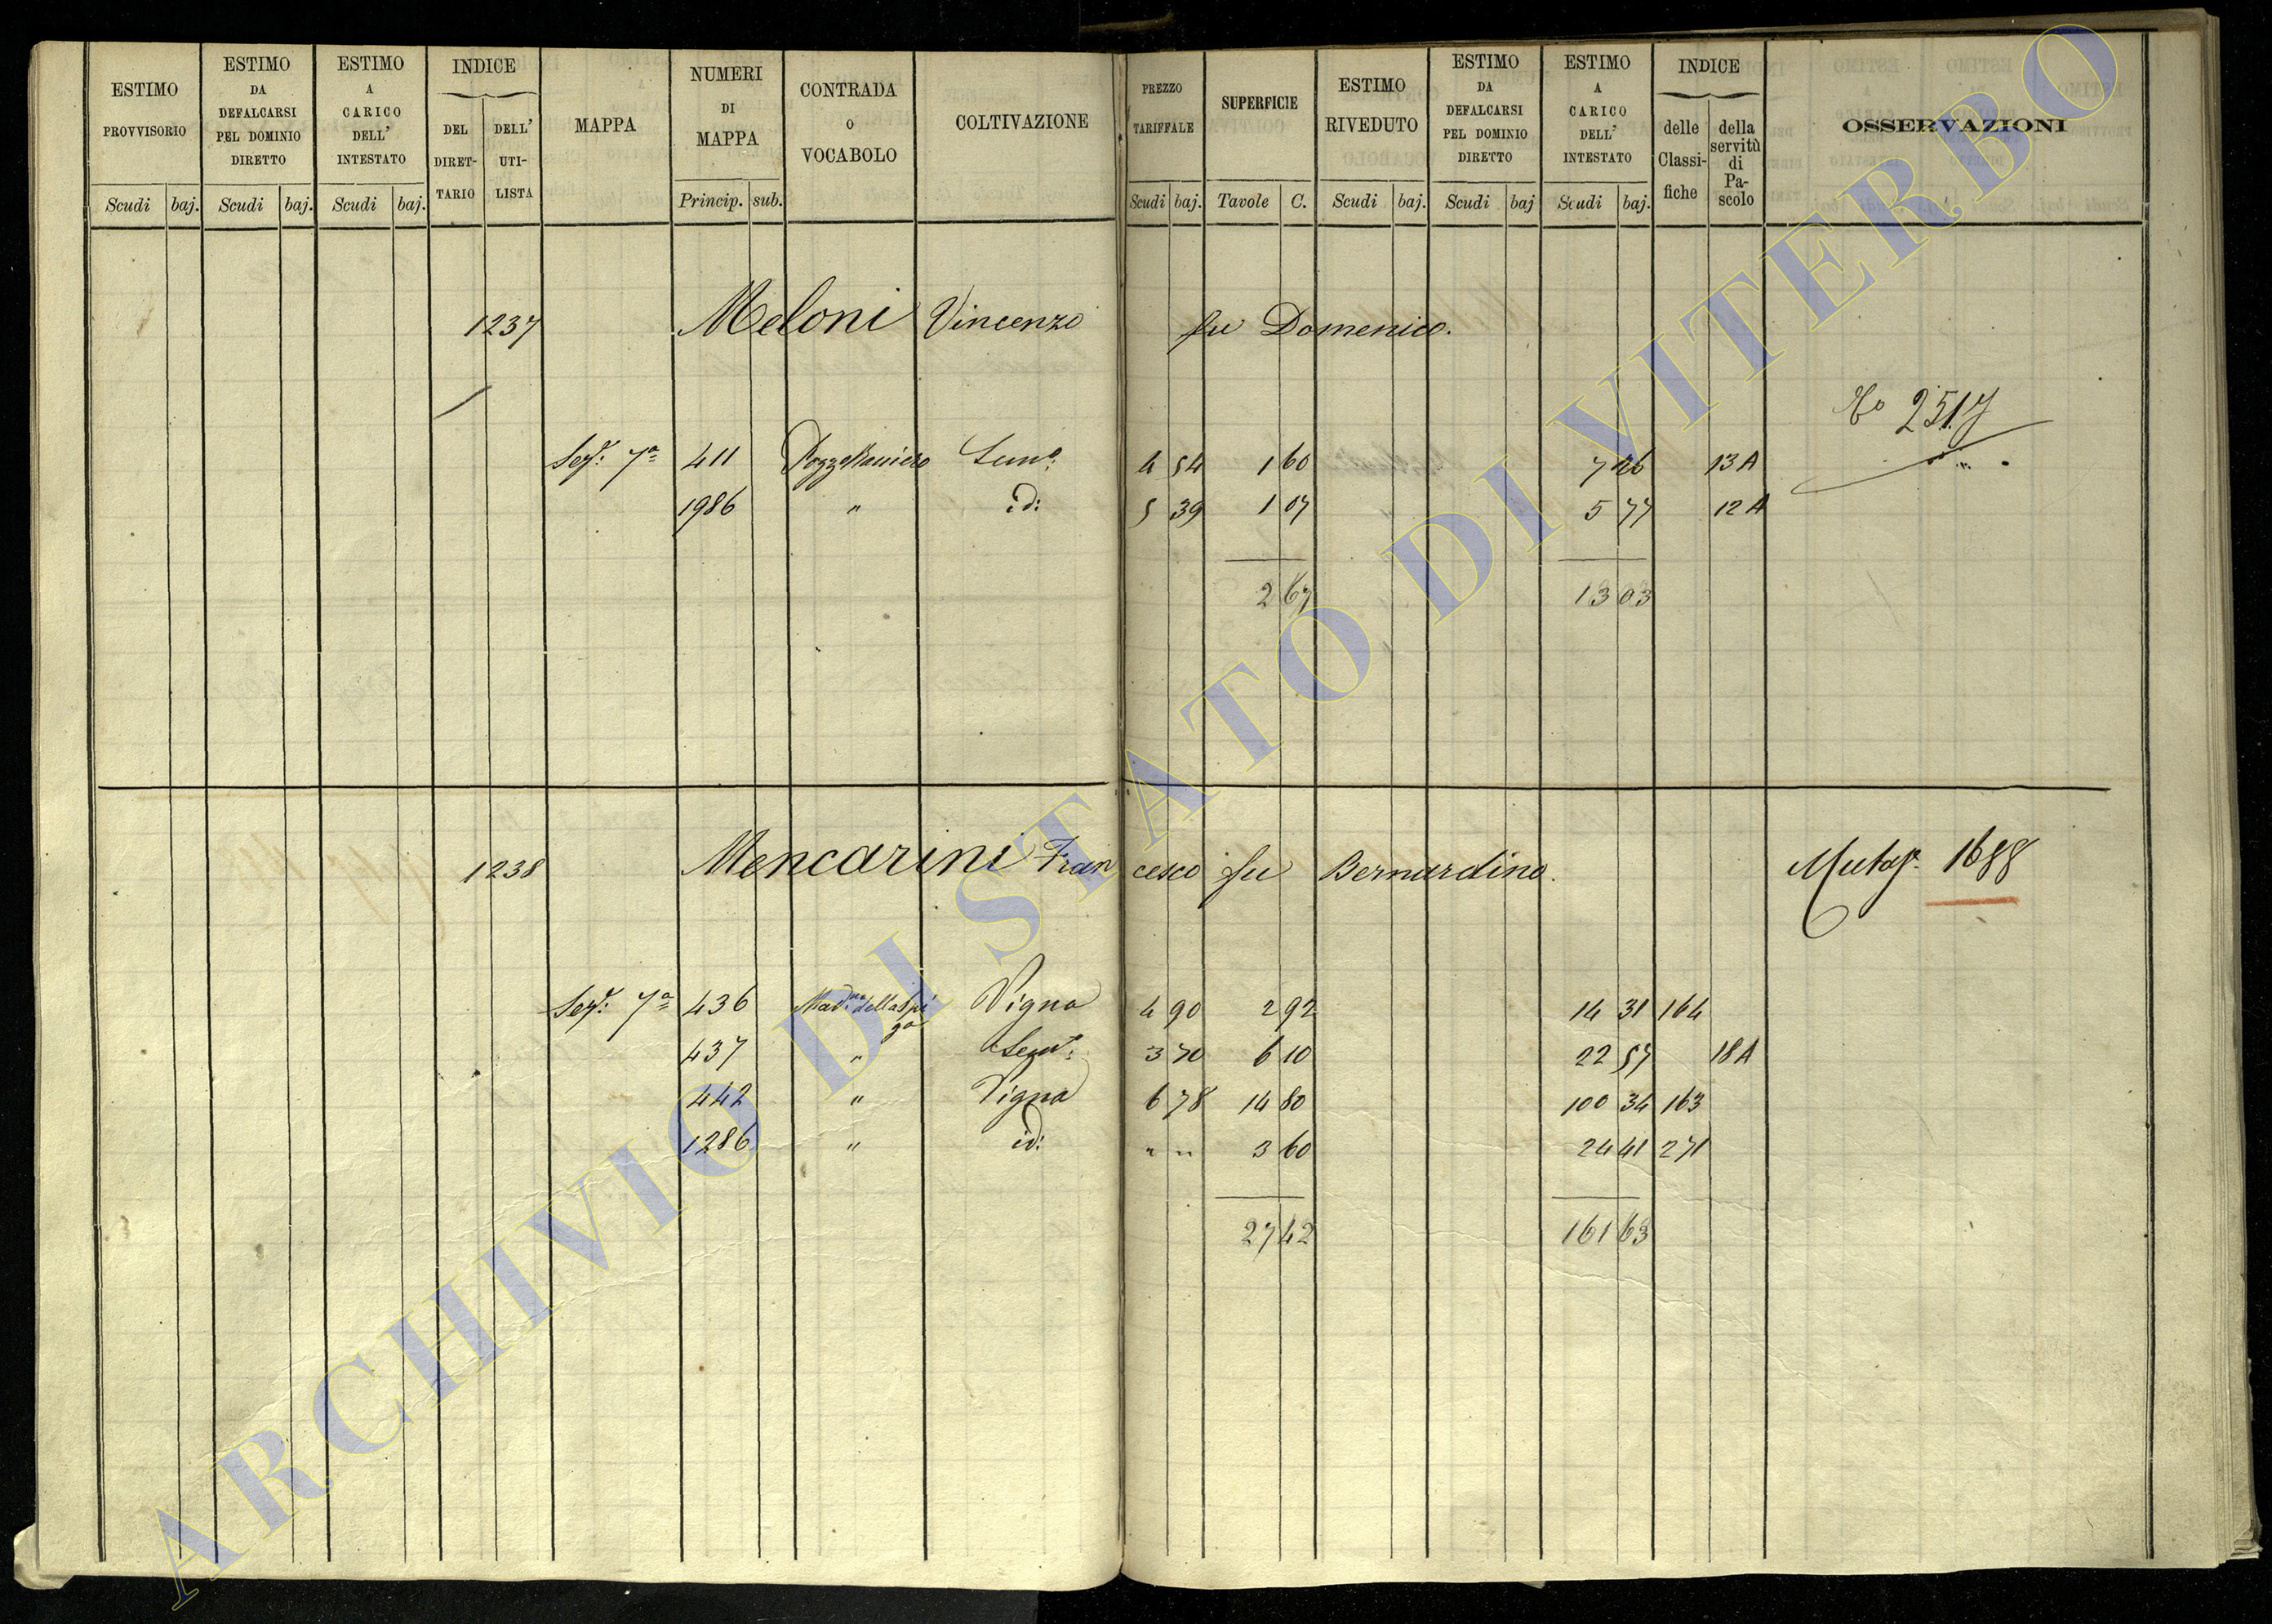 ESTIMO PROVVISORIO Scudi baj.
ESTIMO DA DEFALCARSI PEL DOMINIO DIRETTO Scudi baj.
ESTIMO A CARICO DELL' INTESTATO Scudi baj.
INDICE DEL DIRETTARIO DELL' UTILISTA
MAPPA
NUMERI DI MAPPA Princip. sub.
CONTRADA O VOCABOLO
COLTIVAZIONE
PREZZO TARIFFALE Scudi baj.
SUPERFICIE Tavole C.
ESTIMO RIVEDUTO Scudi baj.
ESTIMO DA DEFALCARSI PEL DOMINIO DIRETTO Scudi baj
ESTIMO A CARICO DELL' INTESTATO Scudi baj.
INDICE delle Classifiche della servitù di Pascolo
OSSERVAZIONI
1237 Meloni Vincenzo fu Domenico.
2517
7ª 411 4 54 1 60 7 26 13 A
1986 " id: 5 39 1 07 5 77 12 A
2 67 13 03
1238 Mencarini Francesco fu Bernardino. 1688
7ª 436 Mad.na della Spiga Vigna 4 90 2 92 14 31 164
437 " Sem.º: 3 70 6 10 22 57 18 A
442 " Vigna 6 78 14 80 100 34 163
1286 " id: " " 3 60 24 41 271
27 42 161 63
ARCHIVIO DI STATO DI VITERBO